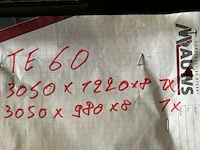 TE 60
3050 x 1220x8 1x
3050 x 980 x8 1x